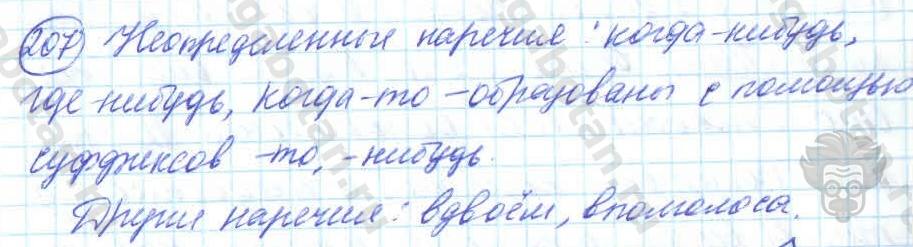 207 Неопределенные наречия: когда-нибудь,
где-нибудь, когда-то – образованы с помощью
суффиксов -то, -нибудь.
Другие наречия: вдвоём, вполголоса.